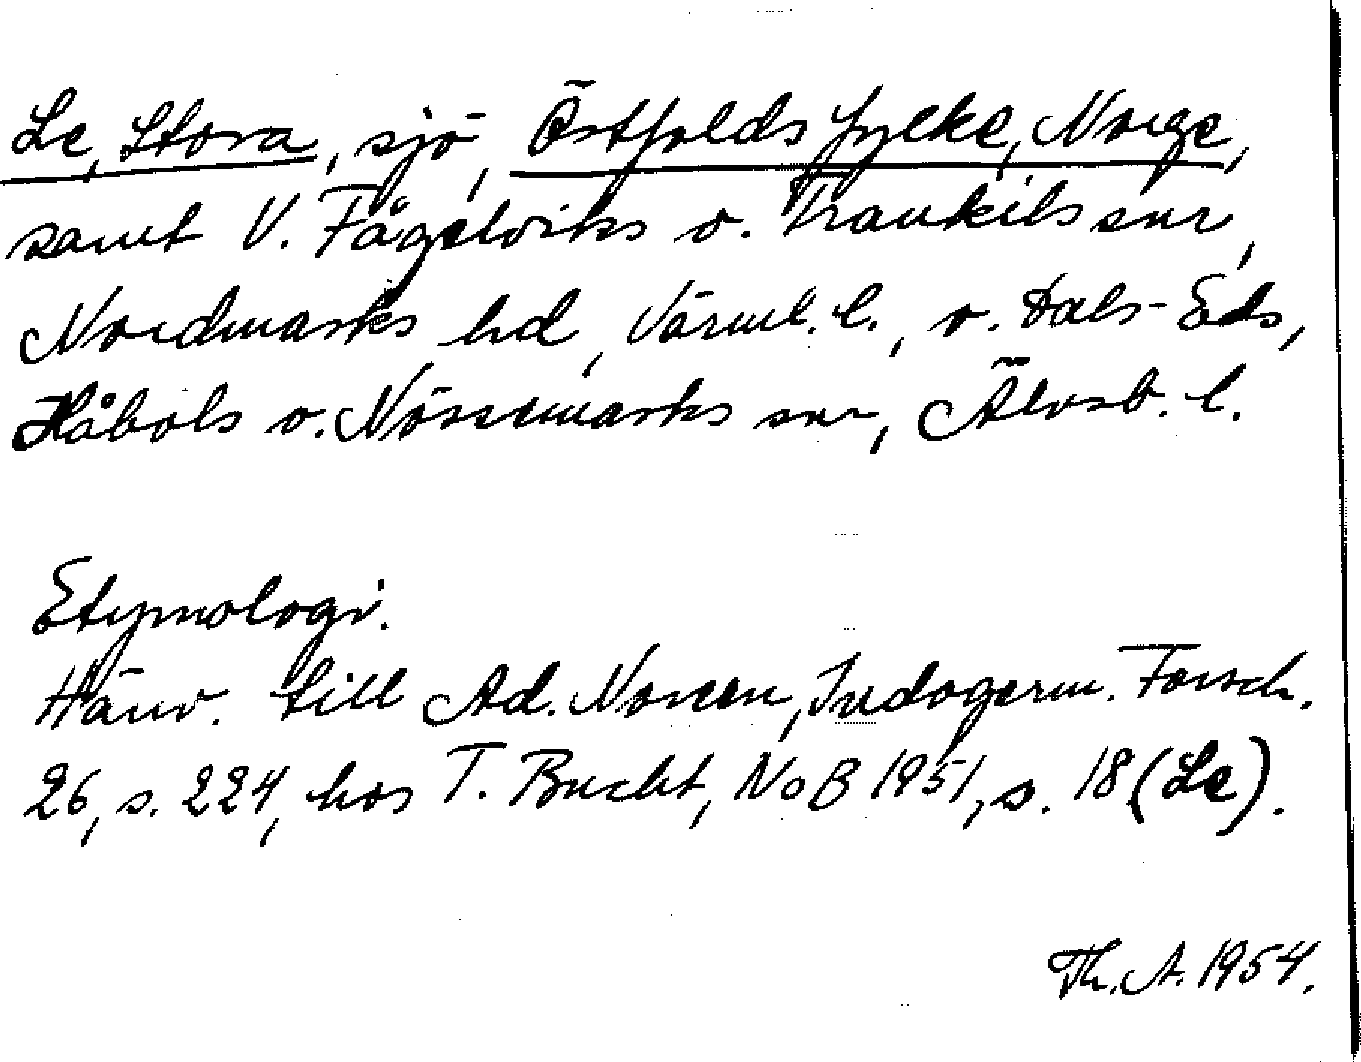 Le, Stora, sjö, Östfolds fylke, Norge,
samt V. Fågelviks o. Trankils snr,
Nordmarks hd, Värml. l., o. Dals-Eds,
Håbols o. Nössemarks snr, Älvsb. l.
Etymologi.
Hänv. till Ad. Noreen, Indogerm. Forsch.
26, s. 224, hos T. Bucht, NoB 1951, s. 18 (Le).
Th. A. 1954.